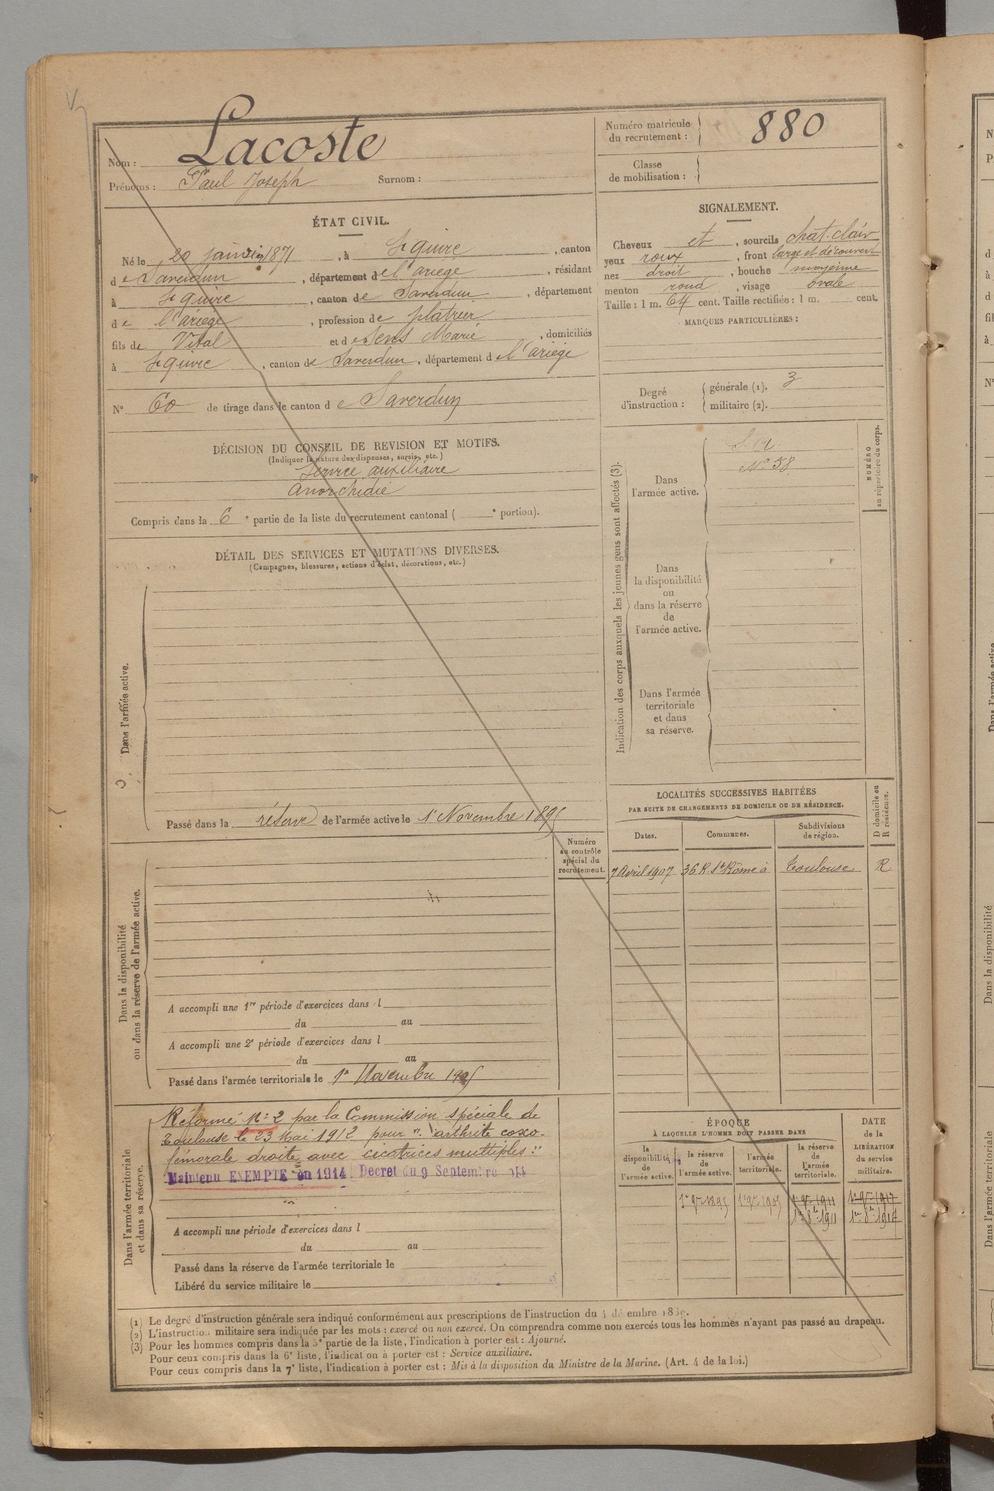 Nom : Lacoste
Prénoms : Paul Joseph Surnom :
Numéro matricule du recrutement : 880
Classe de mobilisation :
ÉTAT CIVIL.
Né le 20 janvier 1871, à St Quirc, canton
de Saverdun, département de l'ariège, résidant
à St Quirc, canton de Saverdun, département
de l'ariège, profession de platrier
fils de Vital et de Sens Marie, domiciliés
à St Quirc, canton de Saverdun, département de l'ariège
N° 60 de tirage dans le canton de Saverdun
SIGNALEMENT.
Cheveux et, sourcils chat. clair
yeux roux, front large et découvert
nez droit, bouche moyenne
menton rond, visage ovale
Taille : 1 m. 64 cent. Taille rectifiée : 1 m. cent.
MARQUES PARTICULIÈRES :
Degré d'instruction : générale (1). 3
militaire (2).
DÉCISION DU CONSEIL DE REVISION ET MOTIFS.
(Indiquer la nature des dispenses, sursis, etc.)
Service auxiliaire
Anorchidie
Compris dans la 6e partie de la liste du recrutement cantonal ( e portion).
Indication des corps auxquels les jeunes gens sont affectés (3).
Dans l'armée active.
N° 58
NUMÉRO au répertoire du corps.
Dans la disponibilité ou dans la réserve de l'armée active.
Dans l'armée territoriale et dans sa réserve.
DÉTAIL DES SERVICES ET MUTATIONS DIVERSES.
(Campagnes, blessures, actions d'éclat, décorations, etc.)
Dans l'armée active.
Passé dans la réserve de l'armée active le 1er Novembre 1895
Numéro au contrôle spécial du recrutement.
LOCALITÉS SUCCESSIVES HABITÉES
PAR SUITE DE CHANGEMENTS DE DOMICILE OU DE RÉSIDENCE.
Dates. Communes. Subdivisions de région. D domicile ou R résidence.
7 Avril 1907 36 R. St Rôme à Toulouse R
Dans la disponibilité ou dans la réserve de l'armée active.
A accompli une 1re période d'exercices dans l
du au
A accompli une 2e période d'exercices dans l
du au
Passé dans l'armée territoriale le 1er Novembre 1905
Dans l'armée territoriale et dans sa réserve.
Réformé n° 2 par la Commission spéciale de
Toulouse le 23 Mai 1912 pour "arthrite coxo-
fémorale droite avec cicatrices multiples"
Maintenu EXEMPTÉ en 1914 Décret du 9 Septembre 1914
A accompli une période d'exercices dans l
du au
Passé dans la réserve de l'armée territoriale le
Libéré du service militaire le
ÉPOQUE
À LAQUELLE L'HOMME DOIT PASSER DANS
DATE de la LIBÉRATION du service militaire.
la disponibilité de l'armée active. la réserve de l'armée active. l'armée territoriale. la réserve de l'armée territoriale.
1er 9bre 1895 1er 9bre 1905 1er 9bre 1911 1er 9bre 1917
1er 8bre 1911 1er 8bre 1917
(1) Le degré d'instruction générale sera indiqué conformément aux prescriptions de l'instruction du 4 décembre
(2) L'instruction militaire sera indiquée par les mots : exercé ou non exercé. On comprendra comme non exercés tous les hommes n'ayant pas passé au drapeau.
(3) Pour les hommes compris dans la 5e partie de la liste, l'indication à porter est : Ajourné.
Pour ceux compris dans la 6e liste, l'indication à porter est : Service auxiliaire.
Pour ceux compris dans la 7e liste, l'indication à porter est : Mis à la disposition du Ministre de la Marine. (Art. 4 de la loi.)